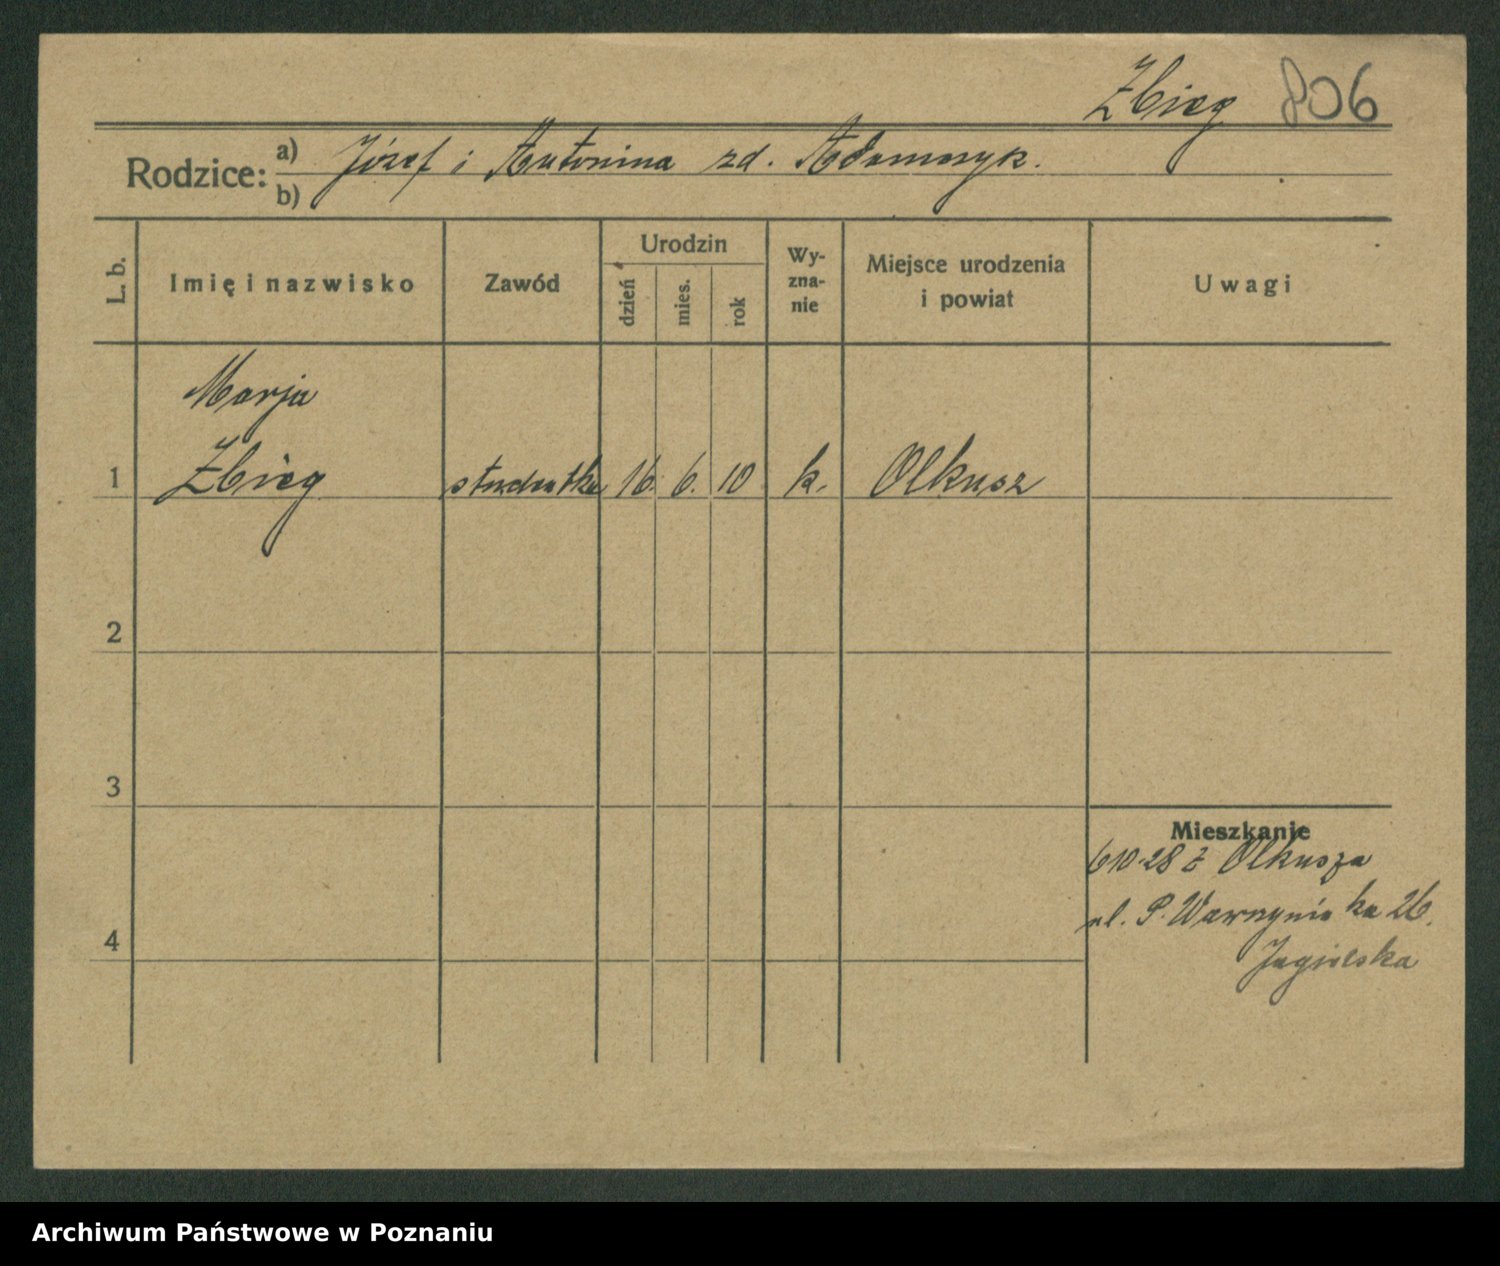 Zbieg 806
Rodzice: a) Józef i Antonina zd. Adamczyk.
b)
L. b. Imię i nazwisko Zawód Urodzin dzień mies. rok Wy-zna-nie Miejsce urodzenia i powiat Uwagi
Marja
1 Zbieg studentka 16. 6. 10 k. Olkusz
2
3
Mieszkanie
610.28 z Olkusza
ul. P. Wawrzyniaka 26.
4
Jagielska
Archiwum Państwowe w Poznaniu